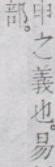 申之義也。易
部。